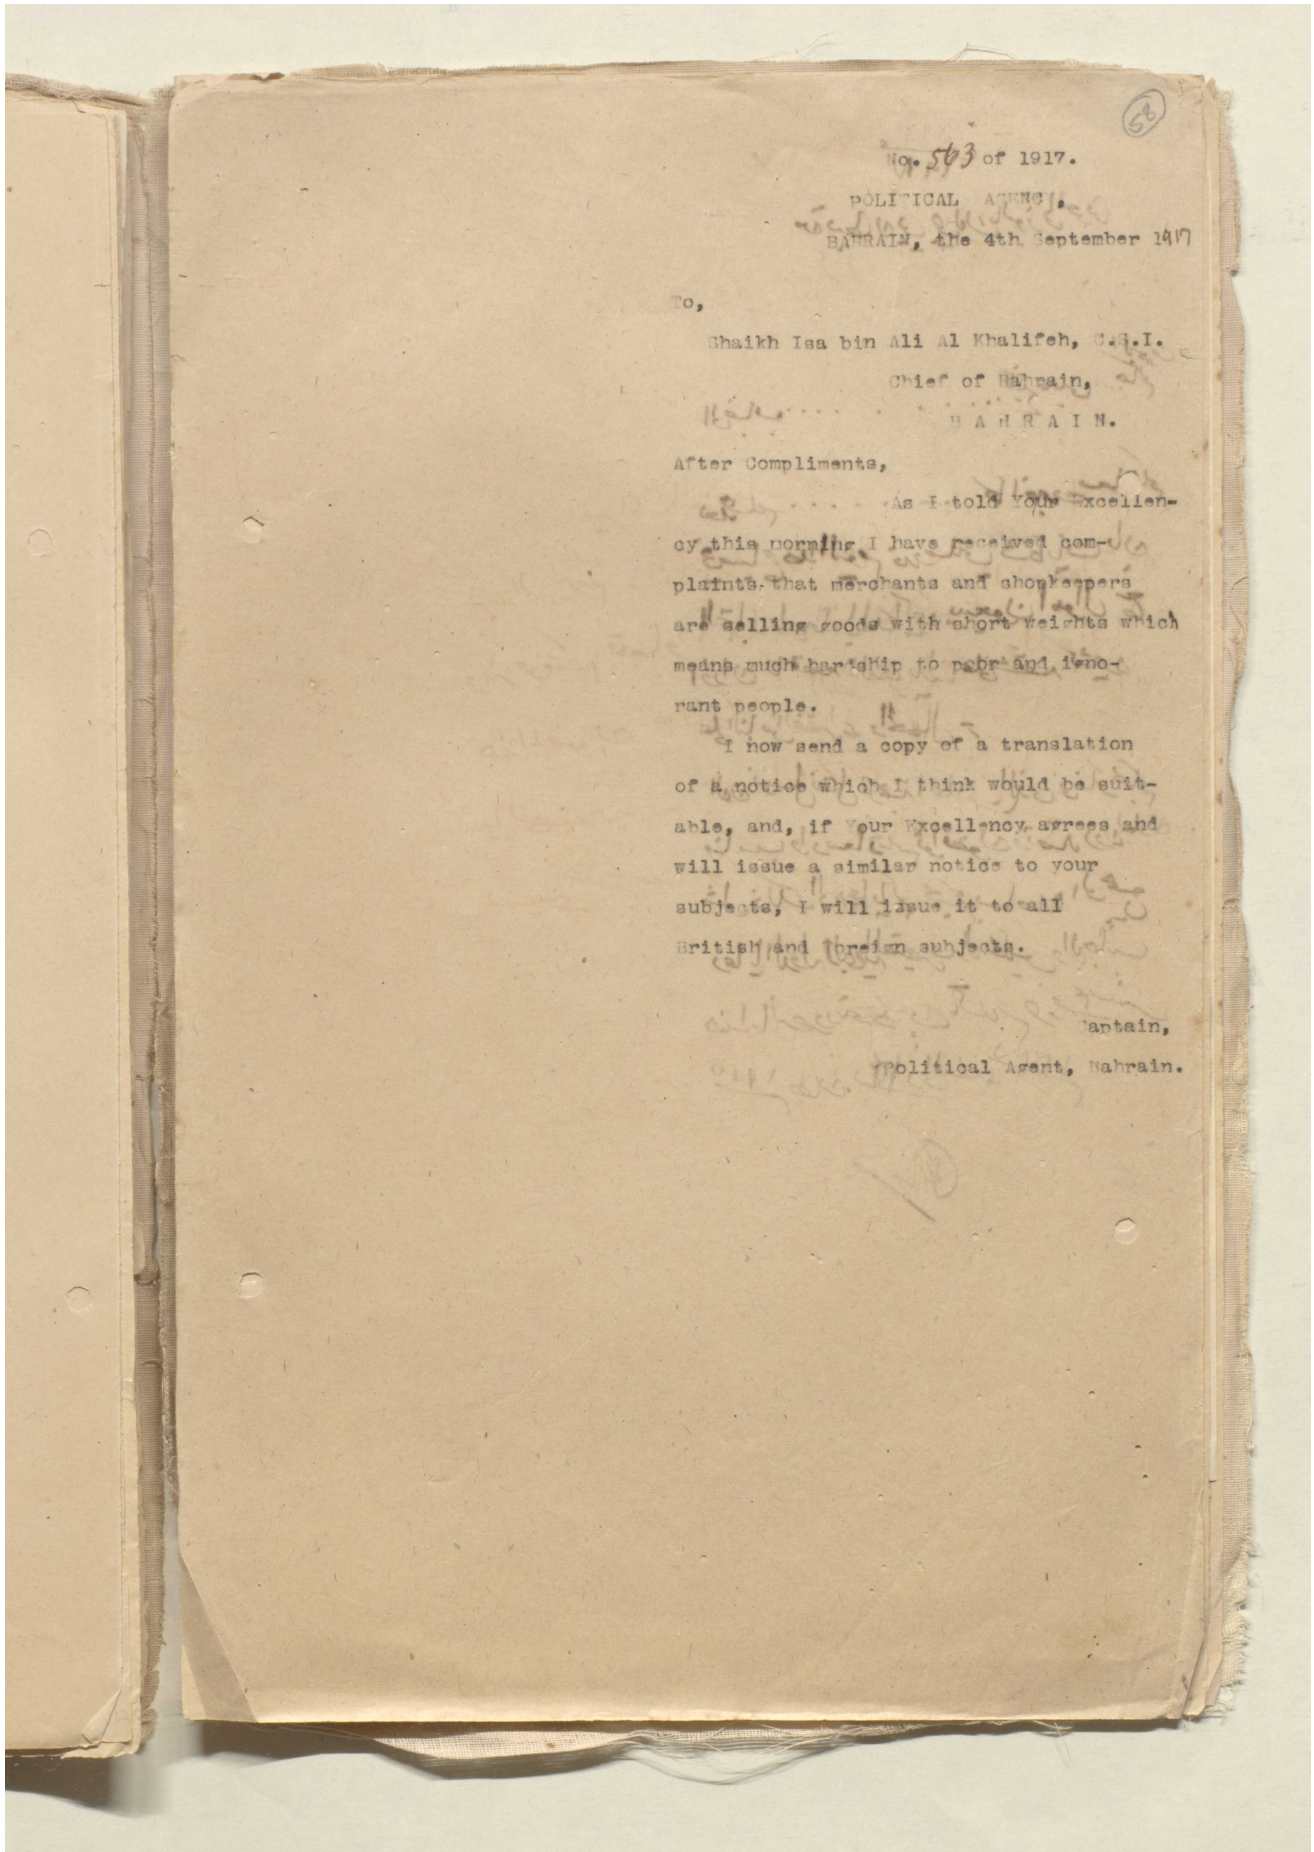 58
No. 563 of 1917.
POLITICAL AGENCY,
BAHRAIN, the 4th September 1917
To,
Shaikh Isa bin Ali Al Khalifeh, C.S.I.
Chief of Bahrain,
B A H R A I N.
After Compliments,
As I told Your Excellen-
cy this morning I have received com-
plaints that merchants and shopkeepers
are selling goods with short weights which
means much hardship to poor and igno-
rant people.
I now send a copy of a translation
of a notice which I think would be suit-
able, and, if Your Excellency agrees and
will issue a similar notice to your
subjects, I will issue it to all
British and foreign subjects.
Captain,
Political Agent, Bahrain.